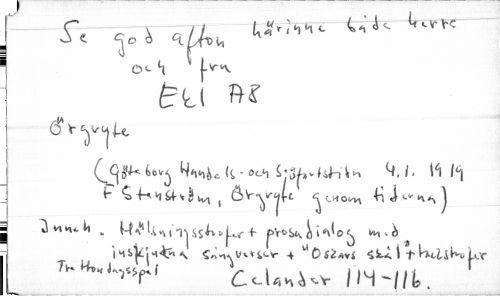 Se god afton härinne både herre
och fru
Ekl AB
Örgryte
(Göteborg Handels- och Sjöfartstidn 4.1. 1919
F Stenström, Örgryte genom tiderna)
Inneh. Hälsningsstrofer + prosadialog med
inskjutna sångverser + "Oszars skål" + tackstrofer
Trettondagsspel
Celander 114-116.